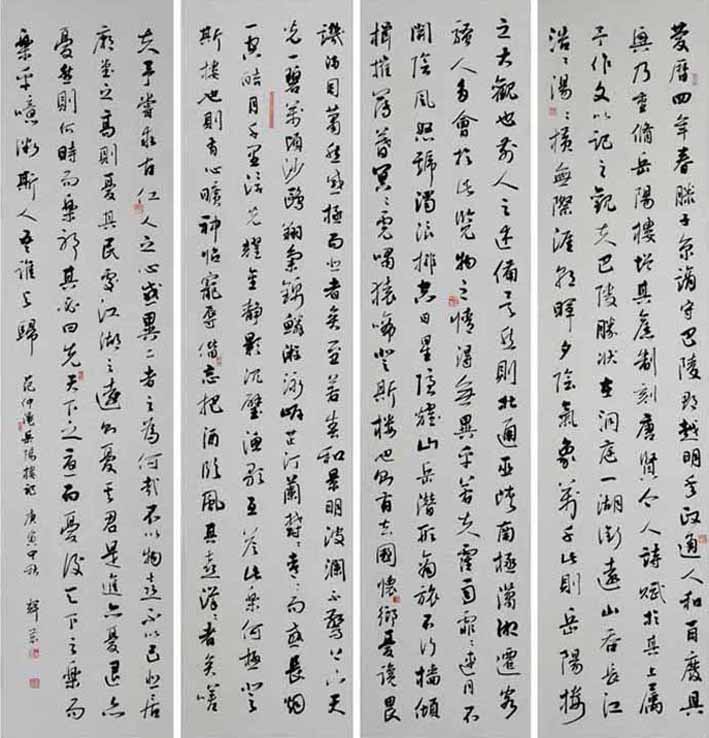 慶曆四年春滕子京謫守巴陵郡越明年政通人和百廢具
興乃重脩岳陽樓增其舊制刻唐賢今人詩賦於其上屬
予作文以記之觀夫巴陵勝狀在洞庭一湖銜遠山吞長江
浩〻湯〻橫無際涯朝暉夕陰氣象萬千此則岳陽樓
之大觀也前人之述備矣然則北通巫峽南極瀟湘遷客
騷人多會於此覽物之情得無異乎若夫霪雨霏〻連月不
開陰風怒號濁浪排空日星隱耀山岳潛形商旅不行檣傾
楫摧薄暮冥〻虎嘯猿啼登斯樓也則有去國懷鄉憂讒畏
譏滿目蕭然感極而悲者矣至若春和景明波瀾不驚上下天
光一碧萬頃沙鷗翔集錦鱗游泳岸芷汀蘭郁〻青〻而或長煙
一空皓月千里浮光耀金靜影沉璧漁歌互答此樂何極登
斯樓也則有心曠神怡寵辱偕忘把酒臨風其喜洋〻者矣嗟
夫予嘗求古仁人之心或異二者之為何哉不以物喜不以己悲居
廟堂之高則憂其民處江湖之遠則憂其君是進亦憂退亦
憂然則何時而樂耶其必曰先天下之憂而憂後天下之樂而
樂乎噫微斯人吾誰與歸 范仲淹岳陽樓記 庚寅中秋 輝